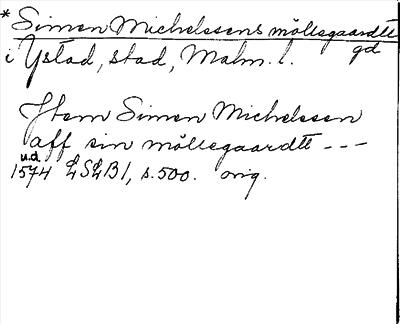 * Simen Michelssens möllegaardtt
gd
i Ystad, stad, Malm. l.
Item Simen Michelssen
aff sin möllegaardtt ---
u.d.
1574 LSLB1, s. 500. orig.